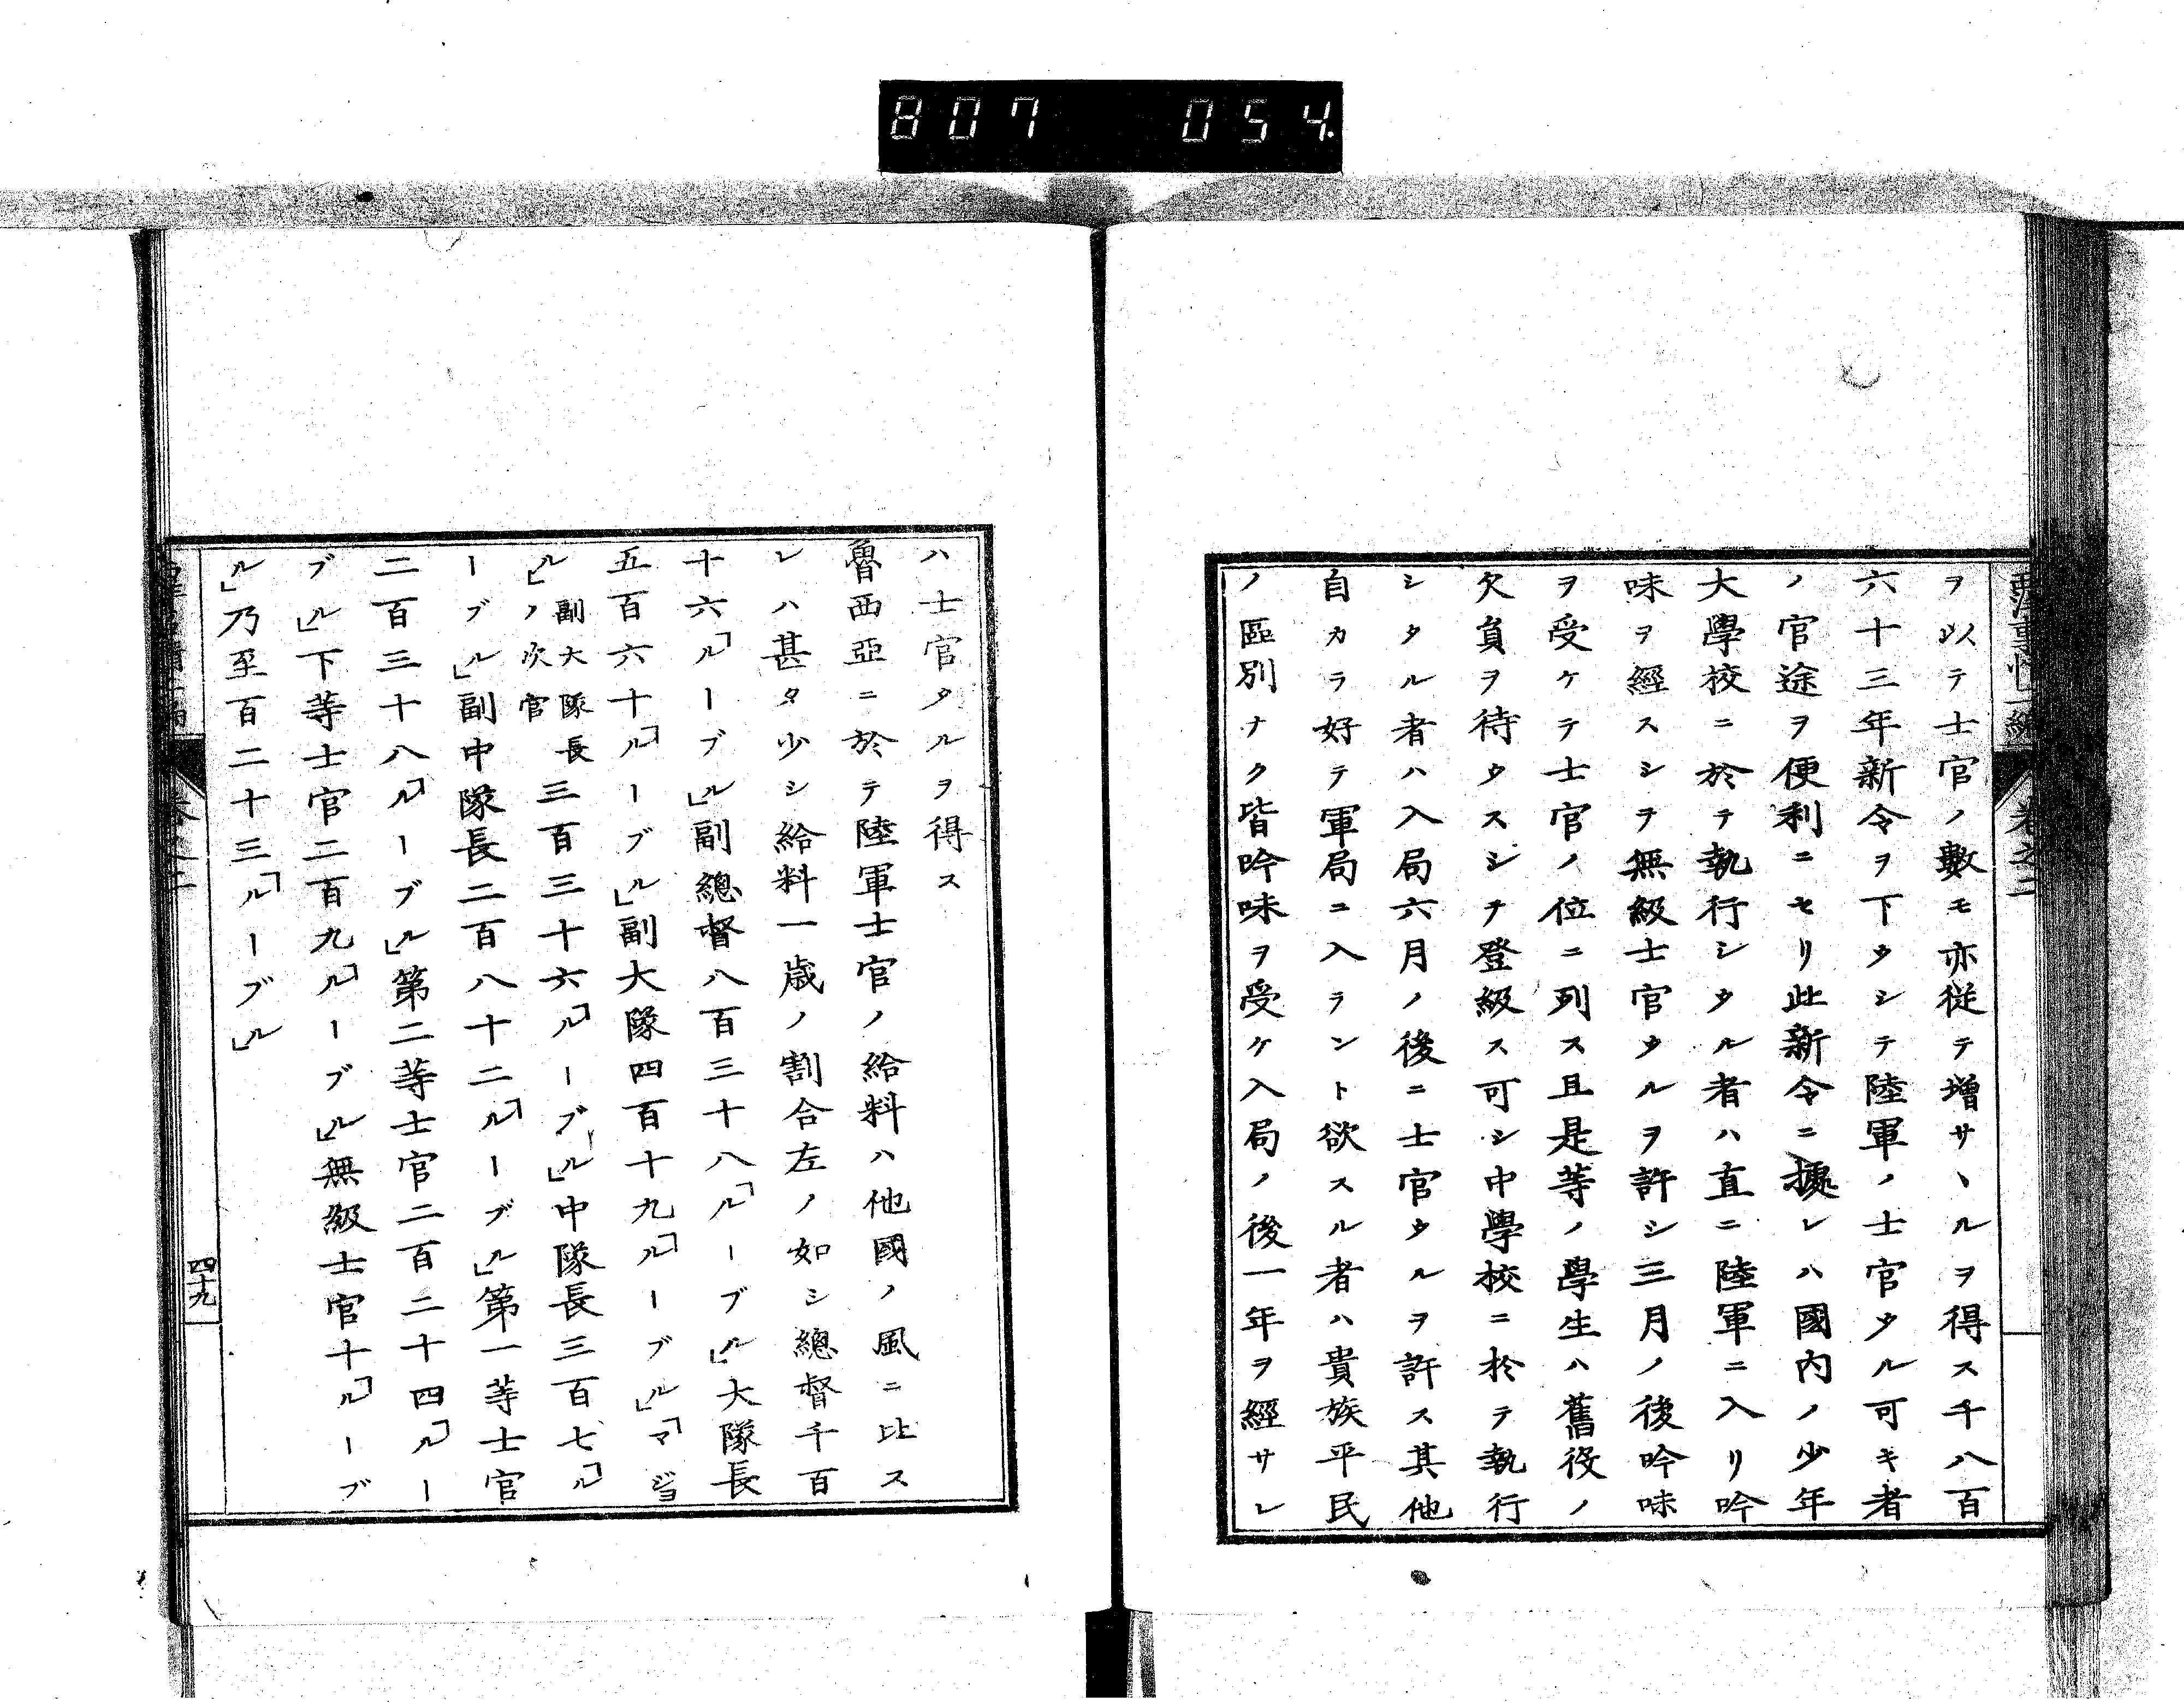 807 054.
西洋事情二編 卷之二
ヲ以テ士官ノ數モ亦從テ增サヽルヲ得ス千八百
六十三年新令ヲ下タシテ陸軍ノ士官タル可キ者
ノ官途ヲ便利ニセリ此新令ニ據レハ國内ノ少年
大學校ニ於テ執行シタル者ハ直ニ陸軍ニ入リ吟
味ヲ經スシテ無級士官タルヲ許シ三月ノ後吟味
ヲ受ケテ士官ノ位ニ列ス且是等ノ學生ハ舊役ノ
欠負ヲ待タスシテ登級ス可シ中學校ニ於テ執行
シタル者ハ入局六月ノ後ニ士官タルヲ許ス其他
自カラ好テ軍局ニ入ラント欲スル者ハ貴族平民
ノ區別ナク皆吟味ヲ受ケ入局ノ後一年ヲ經サレ
ハ士官タルヲ得ス
魯西亞ニ於テ陸軍士官ノ給料ハ他國ノ風ニ比ス
レハ甚タ少シ給料一歳ノ割合左ノ如シ總督千百
十六「ルーブル」副總督八百三十八「ルーブル」大隊長
五百六十「ルーブル」副大隊四百十九「ルーブル」「マジヨ
ル」副大隊長ノ次官三百三十六「ルーブル」中隊長三百七「ル
ーブル」副中隊長二百八十二「ルーブル」第一等士官
二百三十八「ルーブル」第二等士官二百二十四「ルー
ブル」下等士官二百九「ルーブル」無級士官十「ルーブ
ル」乃至百二十三「ルーブル」
西洋事情二編 卷之二 四十九